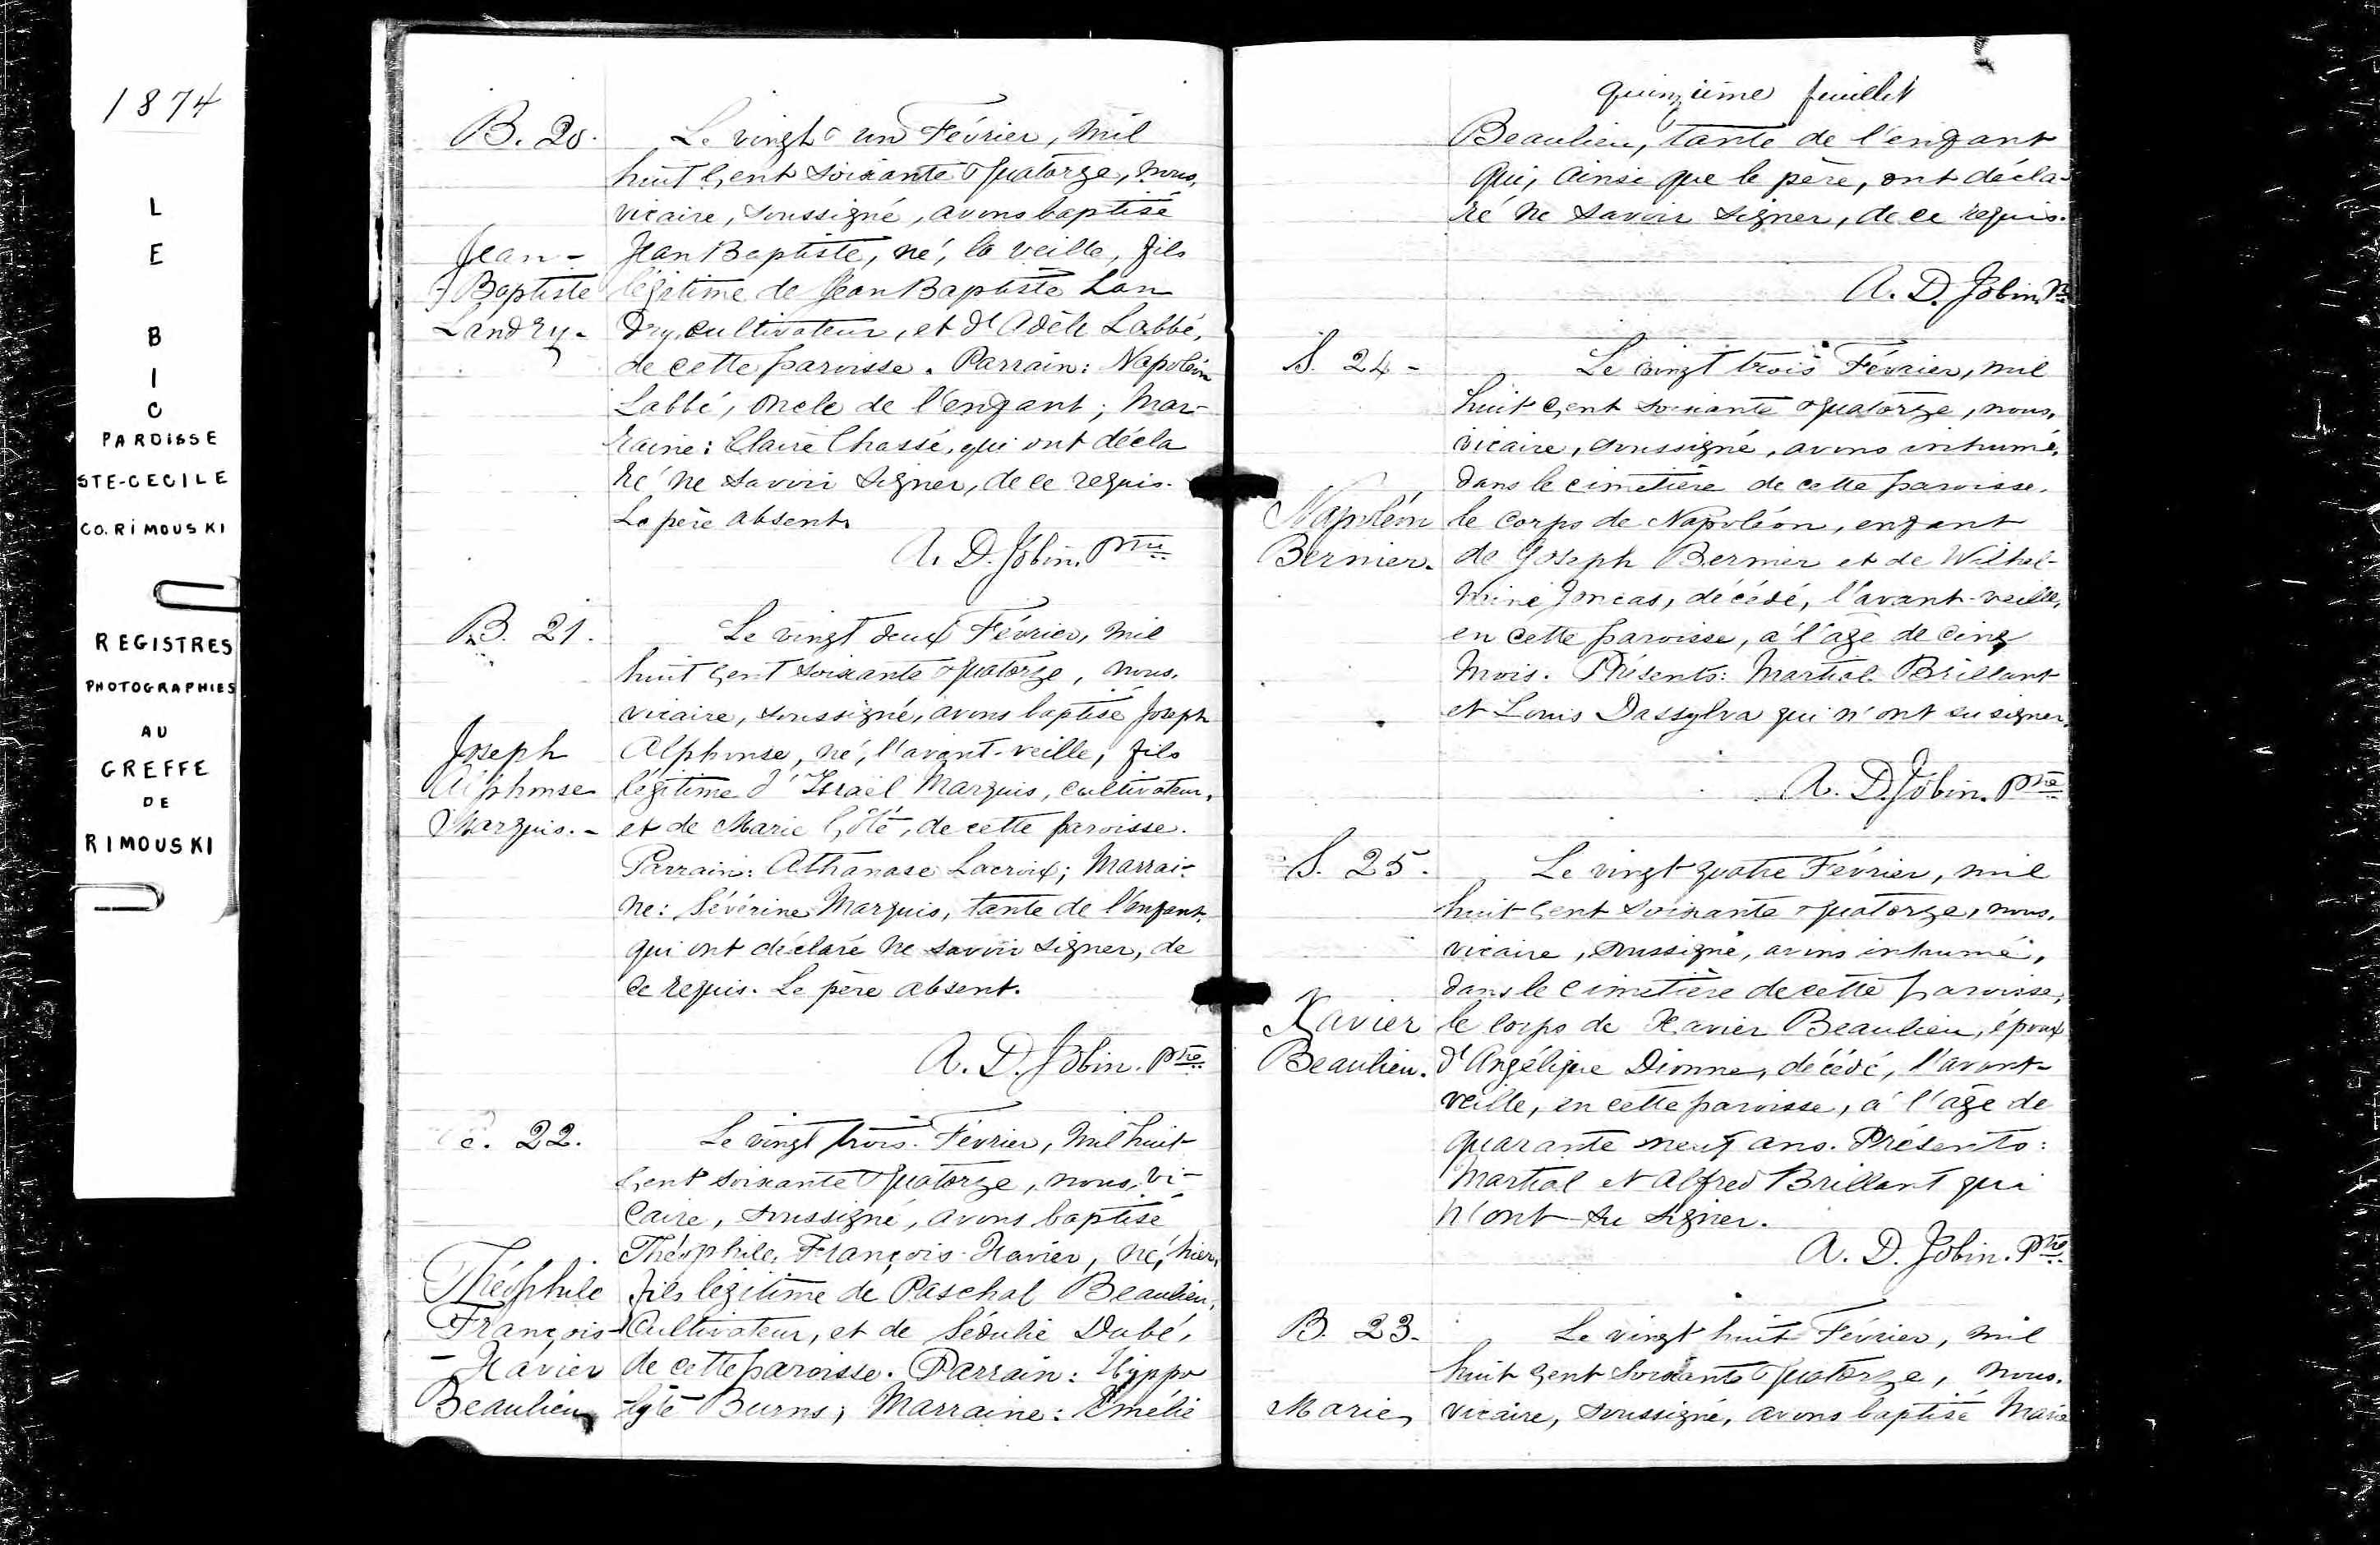 1874
L
E
B
I
C
PAROISSE
STE-CECILE
CO. RIMOUSKI
REGISTRES
PHOTOGRAPHIES
AU
GREFFE
DE
RIMOUSKI
B. 20.
Jean-
Baptiste
Landry-
Le vingt & un Février, mil
huit Cent soixante & quatorze, nous,
vicaire, soussigné, avons baptisé
Jean Baptiste, né, la veille, fils
légitime de Jean Baptiste Lan
dry, cultivateur, et d'Adèle Labbé,
de cette paroisse. Parrain: Napoléon
Labbé, oncle de l'enfant; Mar-
raine: Claire Chassé, qui ont décla
ré ne savoir signer, de ce requis.
Le père absent.
A. D. Jobin. Ptre
B. 21.
Joseph
Alphonse
Marquis.-
Le vingt deux Février, mil
huit Cent soixante & quatorze, nous,
vicaire, soussigné, avons baptisé Joseph
Alphonse, né, l'avant-veille, fils
légitime d'Israël Marquis, cultivateur,
et de Marie Côté, de cette paroisse.
Parrain: Athanase Lacroix; Marrai-
ne: Sévérine Marquis, tante de l'enfant,
qui ont déclaré ne savoir signer, de
ce requis. Le père absent.
A. D. Jobin. Ptre
22.
Théophile
François-
-Xavier
Beaulieu
Le vingt trois Février, mil huit
Cent soixante & quatorze, nous, vi-
caire, soussigné, avons baptisé
Théophile, François-Xavier, né, hier,
fils légitime de Paschal Beaulieu,
Cultivateur, et de Sédulie Dubé,
de cette paroisse. Parrain: Hyppo
lyte Burns; Marraine: Émélie
quinzième feuillet
Beaulieu, tante de l'enfant
qui, ainsi que le père, ont décla-
ré ne savoir signer, de ce requis.
A. D. Jobin. Ptre
S. 24-
Napoléon
Bernier.
Le vingt trois Février, mil
huit Cent soixante & quatorze, nous,
vicaire, soussigné, avons inhumé,
dans le cimetière de cette paroisse,
le corps de Napoléon, enfant
de Joseph Bernier et de Wilhel-
mine Joncas, décédé, l'avant-veille,
en cette paroisse, à l'age de cinq
mois. Présents: Martial Brillant
et Louis Dassylva qui n'ont su signer.
A. D. Jobin. Ptre
S. 25.
Xavier
Beaulieu.
Le vingt quatre Février, mil
huit Cent soixante & quatorze, nous,
vicaire, soussigné, avons inhumé,
dans le cimetière de cette paroisse,
le corps de Xavier Beaulieu, époux
d'Angélique Dionne, décédé, l'avant-
veille, en cette paroisse, à l'age de
quarante neuf ans. Présents:
Martial et Alfred Brillant qui
n'ont su signer.
A. D. Jobin. Ptre
B. 23.
Marie
Le vingt huit Février, mil
huit Cent soixante & quatorze, nous,
vicaire, soussigné, avons baptisé Marie